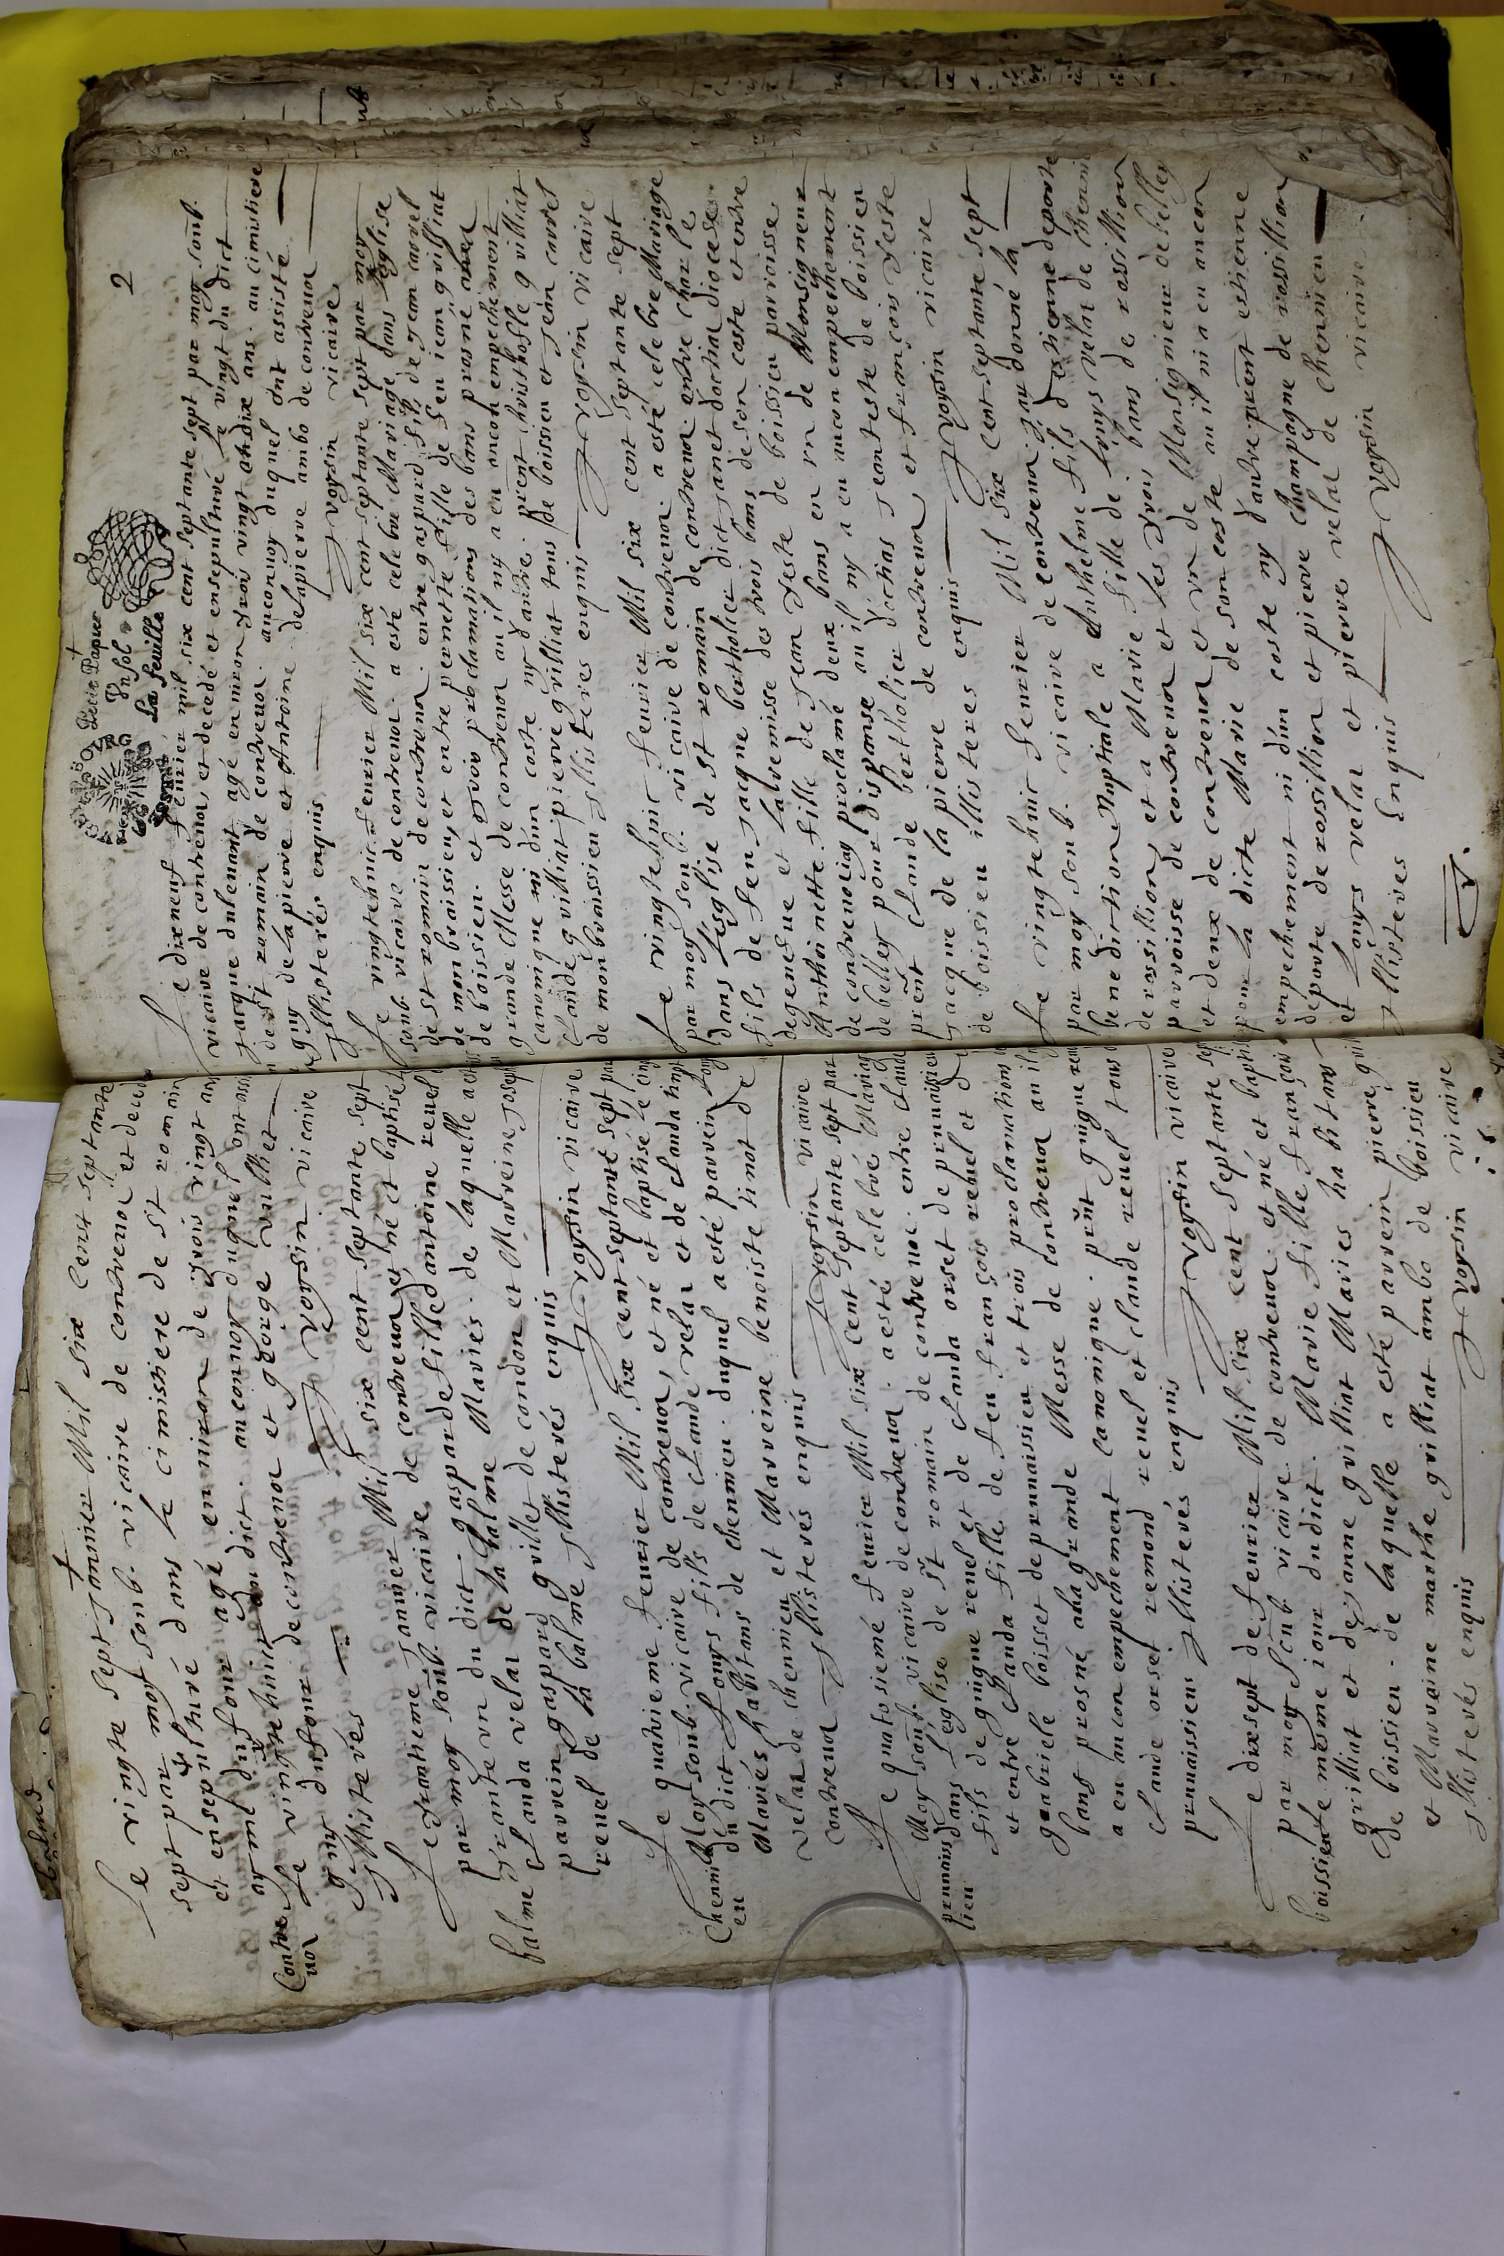 Le vingte sept Jannier Mil six cent septante
sept par moy soub. vicaire de contrevoz et decedé
et ensepulturé dans le cimistiere de st romain
aymé dufour agé enniron de trois vingt ans
le vingtehuict du dict. auconnoy duquel ont assisté
guy dufour de contrevoz et george vulliet
Illisterés
J Voysin vicaire
Contrevoz
Le trantieme Jannier Mil six cent septante sept
par moy soub. vicaire de contrevoz et né et baptisé le
trante vn du dict. gasparde fille d antoine reuel
Clauda velat de la balme Mariés. de laquelle a esté
parrein gaspard guillet de condon et Marreine Joseph
reuel de la balme Illisterés enquis
J voysin vicaire
balme
Le quatrieme feurier Mil six cent septante sept par
Moy soub. vicaire de contrevoz, et né et baptisé le cinq
du dict Louys fils de Claude velat et de Clauda tinot
Mariés habitans de chemnien. duquel a esté parrein Louys
velat de chemnien et Marreine benoiste tinot de
contrevoz Illisterés enquis
J Voysin vicaire
Chennillien
Le quatosiemé feurier Mil six cent septante sept par
Moy soub. vicaire de contrevoz. a esté celebré Mariage
dans l'eglise de st romain de contrevoz. entre claude
fils de guigue reuel et de Clauda orset de prunaissieu
et entré Clanda fille de feu françois rebuel et d
gabriele boisset de prunaissieu et trois proclamations
bans prosné a la grande Messe de contrevoz au il n
a eu aucon empechement canonique. prnt guigue reuel
Claude orset remond reuel et claude reuel tous de
prunaissieus Illisterés enquis
J Voysin vicaire
prunaissieu
Le dixsept de feurier Mil six cent septante sept
par moy soub. vicaire de contrevoz. et né et baptisé
le mesme iour dudict. Marie fille françois
grilliat et de Janne guilliat Maries habitans
de boissien. de laquelle a esté parrein pierre guilliat
et Marreine marthe guilliat ambo de boissieu
Illisterés enquis
J Voysin vicaire
boissien
2
Petit Papier
Vn sol
La feuille
Le dixneuf feurier mil six cent septante sept par moy soub.
vicaire de contrevoz, et decedé et ensepulturé le vingt du dict
Jacque dutenant agé enniron trois vingt at dix ans. au cimitiere
de st romain de contrevoz. auconnoy duquel ont assisté
guy de la pierre et Antoine de lapierre ambo de contrevoz
Illisterés enquis
J Voysin vicaire
Le vingtehuict feurier Mil six cent septante sept par moy
soub. vicaire de contrevoz. a esté celebré Mariage dans leglise
de st romain de contrevoz. entre gaspard fils de Jean carrel
de mon braissieu, et entre pernette fille de feu iean guilliat
de boissien. et trois proclamations des bans prosné a la
grande Messe de contrevoz au il ny a eu aucon empechement
canonique ni d'un coste ny d'autre. prent christhofle guilliat
Claude guilliat pierre guilliat tous de boissien et Jean carrel
de mon braissieu Illisteres enquis
J Voysin vicaire
Le vingtehuic feurier Mil six cent septante sept
par moy soub. vicaire de contrevoz a esté celebre Mariage
dans l'esglise de st romain de contrevoz. entre charle
fils de feu Jacque bertholier dict Janet dortias diocese
de geneue et la remisse des trois bans de son coste et entre
Anthoinette fille de Jean teste de boissieu parroisse
de contrevoz ay proclamé deux bans en vn de Monsigneur
de belley pour dispanse au il ny a eu aucon empechement
prent Claude bertholier dortias Jean teste de boissien
Jacque de la pierre de contrevoz et francois teste
de boissieu illisteres enquis
J Voysin vicaire
Le vingtehuic feurier Mil six cent septante sept
par moy soub. vicaire de contrevoz J'ay donné la
benediction Nuptiale a Anthelme fils d'estienne deporte
de rossillion, et a Marie fille de Louys velat de chemnien
parroisse de contrevoz et les trois bans de rossillion
et deux de contrevoz et vn de Monsigneur de belley
pour la dicte Marie de son coste au il ni a eu aucon
empechement ni d'un coste ny d'autre prent estienne
deporte de rossillion et pierre champagne de rossillion
et Louys velat et pierre velat de chemnien
Illisteres Enquis
J Voysin vicaire